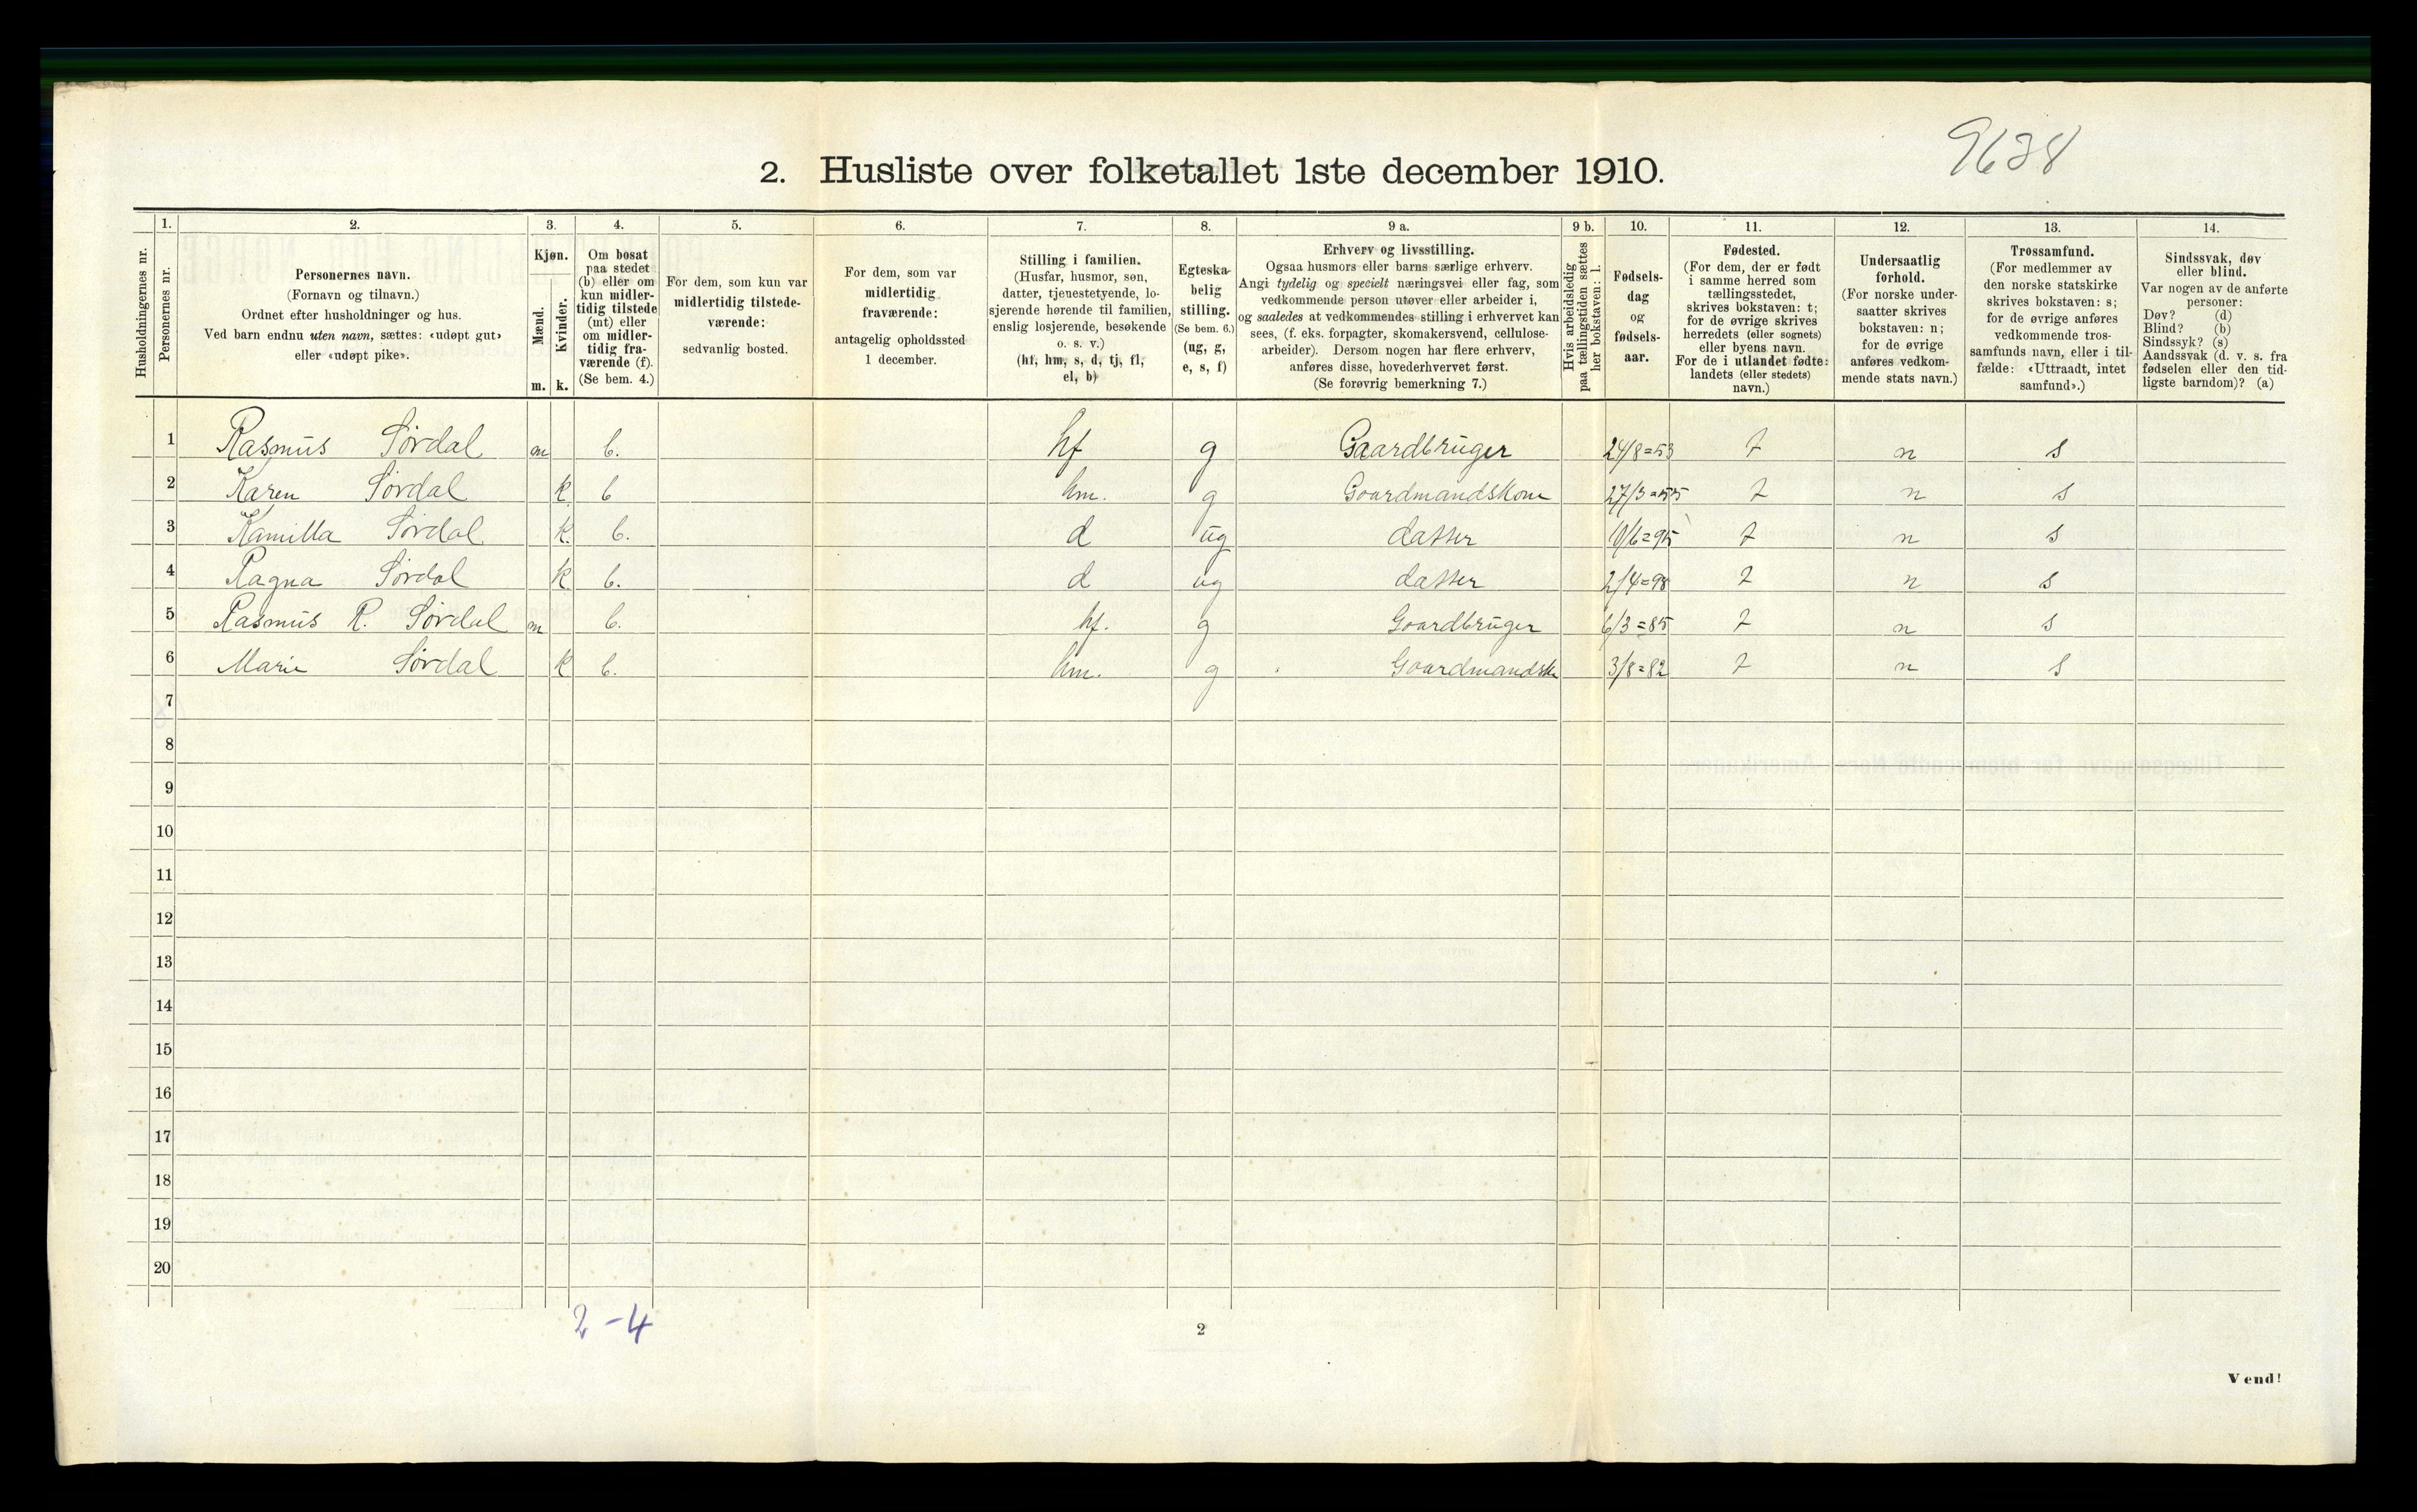 9638
2. Husliste over folketallet 1ste december 1910.
Husholdningernes nr.
1.
Personernes nr.
2.
Personernes navn.
(Fornavn og tilnavn.)
Ordnet efter husholdninger og hus.
Ved barn endnu uten navn, sættes: «udøpt gut»
eller «udøpt pike».
3.
Kjøn.
Mænd.
m.
Kvinder.
k.
4.
Om bosat
paa stedet
(b) eller om
kun midler-
tidig tilstede
(mt) eller
om midler-
tidig fra-
værende (f).
(Se bem. 4.)
5.
For dem, som kun var
midlertidig tilstede-
værende:
sedvanlig bosted.
6.
For dem, som var
midlertidig
fraværende:
antagelig opholdssted
1 december.
7.
Stilling i familien.
(Husfar, husmor, søn,
datter, tjenestetyende, lo-
sjerende hørende til familien,
enslig losjerende, besøkende
o. s. v.)
(hf, hm, s, d, tj, fl,
el, b)
8.
Egteska-
belig
stilling.
(Se bem. 6.)
(ug, g,
e, s, f)
9 a.
Erhverv og livsstilling.
Ogsaa husmors eller barns særlige erhverv.
Angi tydelig og specielt næringsvei eller fag, som
vedkommende person utøver eller arbeider i,
og saaledes at vedkommendes stilling i erhvervet kan
sees, (f. eks. forpagter, skomakersvend, cellulose-
arbeider). Dersom nogen har flere erhverv,
anføres disse, hovederhvervet først.
(Se forøvrig bemerkning 7.)
9 b.
Hvis arbeidsledig
paa tællingstiden sættes
her bokstaven: l.
10.
Fødsels-
dag
og
fødsels-
aar.
11.
Fødested.
(For dem, der er født
i samme herred som
tællingsstedet,
skrives bokstaven: t;
for de øvrige skrives
herredets (eller sognets)
eller byens navn.
For de i utlandet fødte:
landets (eller stedets)
navn.)
12.
Undersaatlig
forhold.
(For norske under-
saatter skrives
bokstaven: n;
for de øvrige
anføres vedkom-
mende stats navn.)
13.
Trossamfund.
(For medlemmer av
den norske statskirke
skrives bokstaven: s;
for de øvrige anføres
vedkommende tros-
samfunds navn, eller i til-
fælde: «Uttraadt, intet
samfund».)
14.
Sindssvak, døv
eller blind.
Var nogen av de anførte
personer:
Døv? (d)
Blind? (b)
Sindssyk? (s)
Aandssvak (d. v. s. fra
fødselen eller den tid-
ligste barndom)? (a)
1 Rasmus Sørdal m b. hf g Gaardbruger 24/8=53 t n s
2 Karen Sørdal k b hm. g Gaardmandskone 27/3=55 t n s
3 Kamilla Sørdal k. b. d ug datter t n s
4 Ragna Sørdal k b. d ug datter 2/4=98 t n s
5 Rasmus R. Sørdal m b. hf. g Gaardbruger 6/3=85 t n s
6 Marie Sørdal k b. hm. g Gaardmandsk 3/8=82 t n s
7
8
9
10
11
12
13
14
15
16
17
18
19
20
2-4
2
Vend!